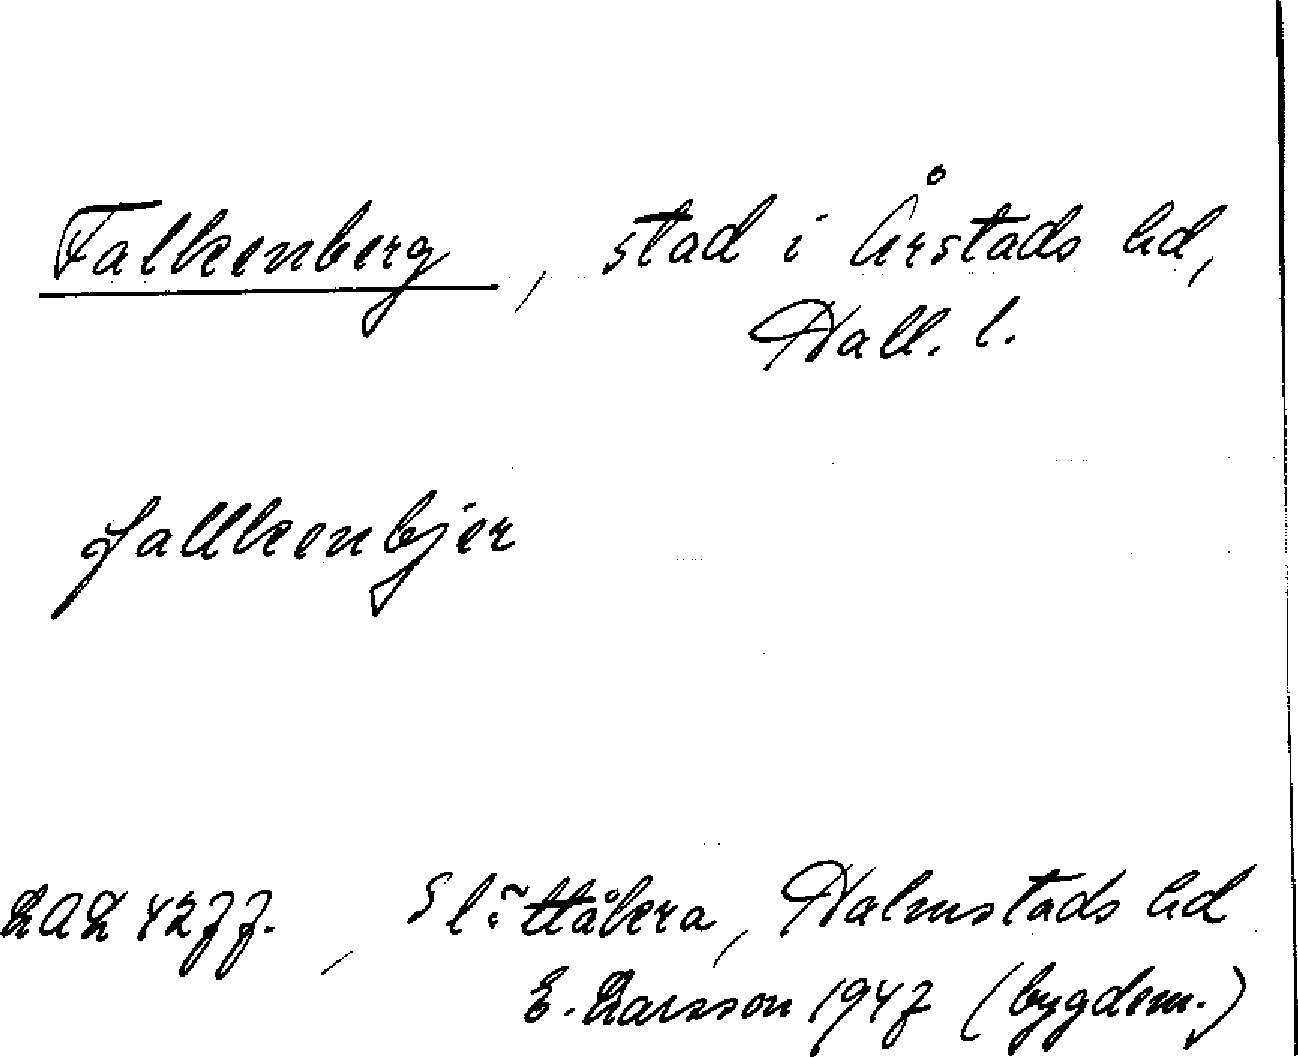 Falkenberg, stad i Årstads hd,
Hall. l.
fallkenbjer
LAL 4277. , Slättåkra, Halmstads hd
E. Larsson 1947 (bygdem.)